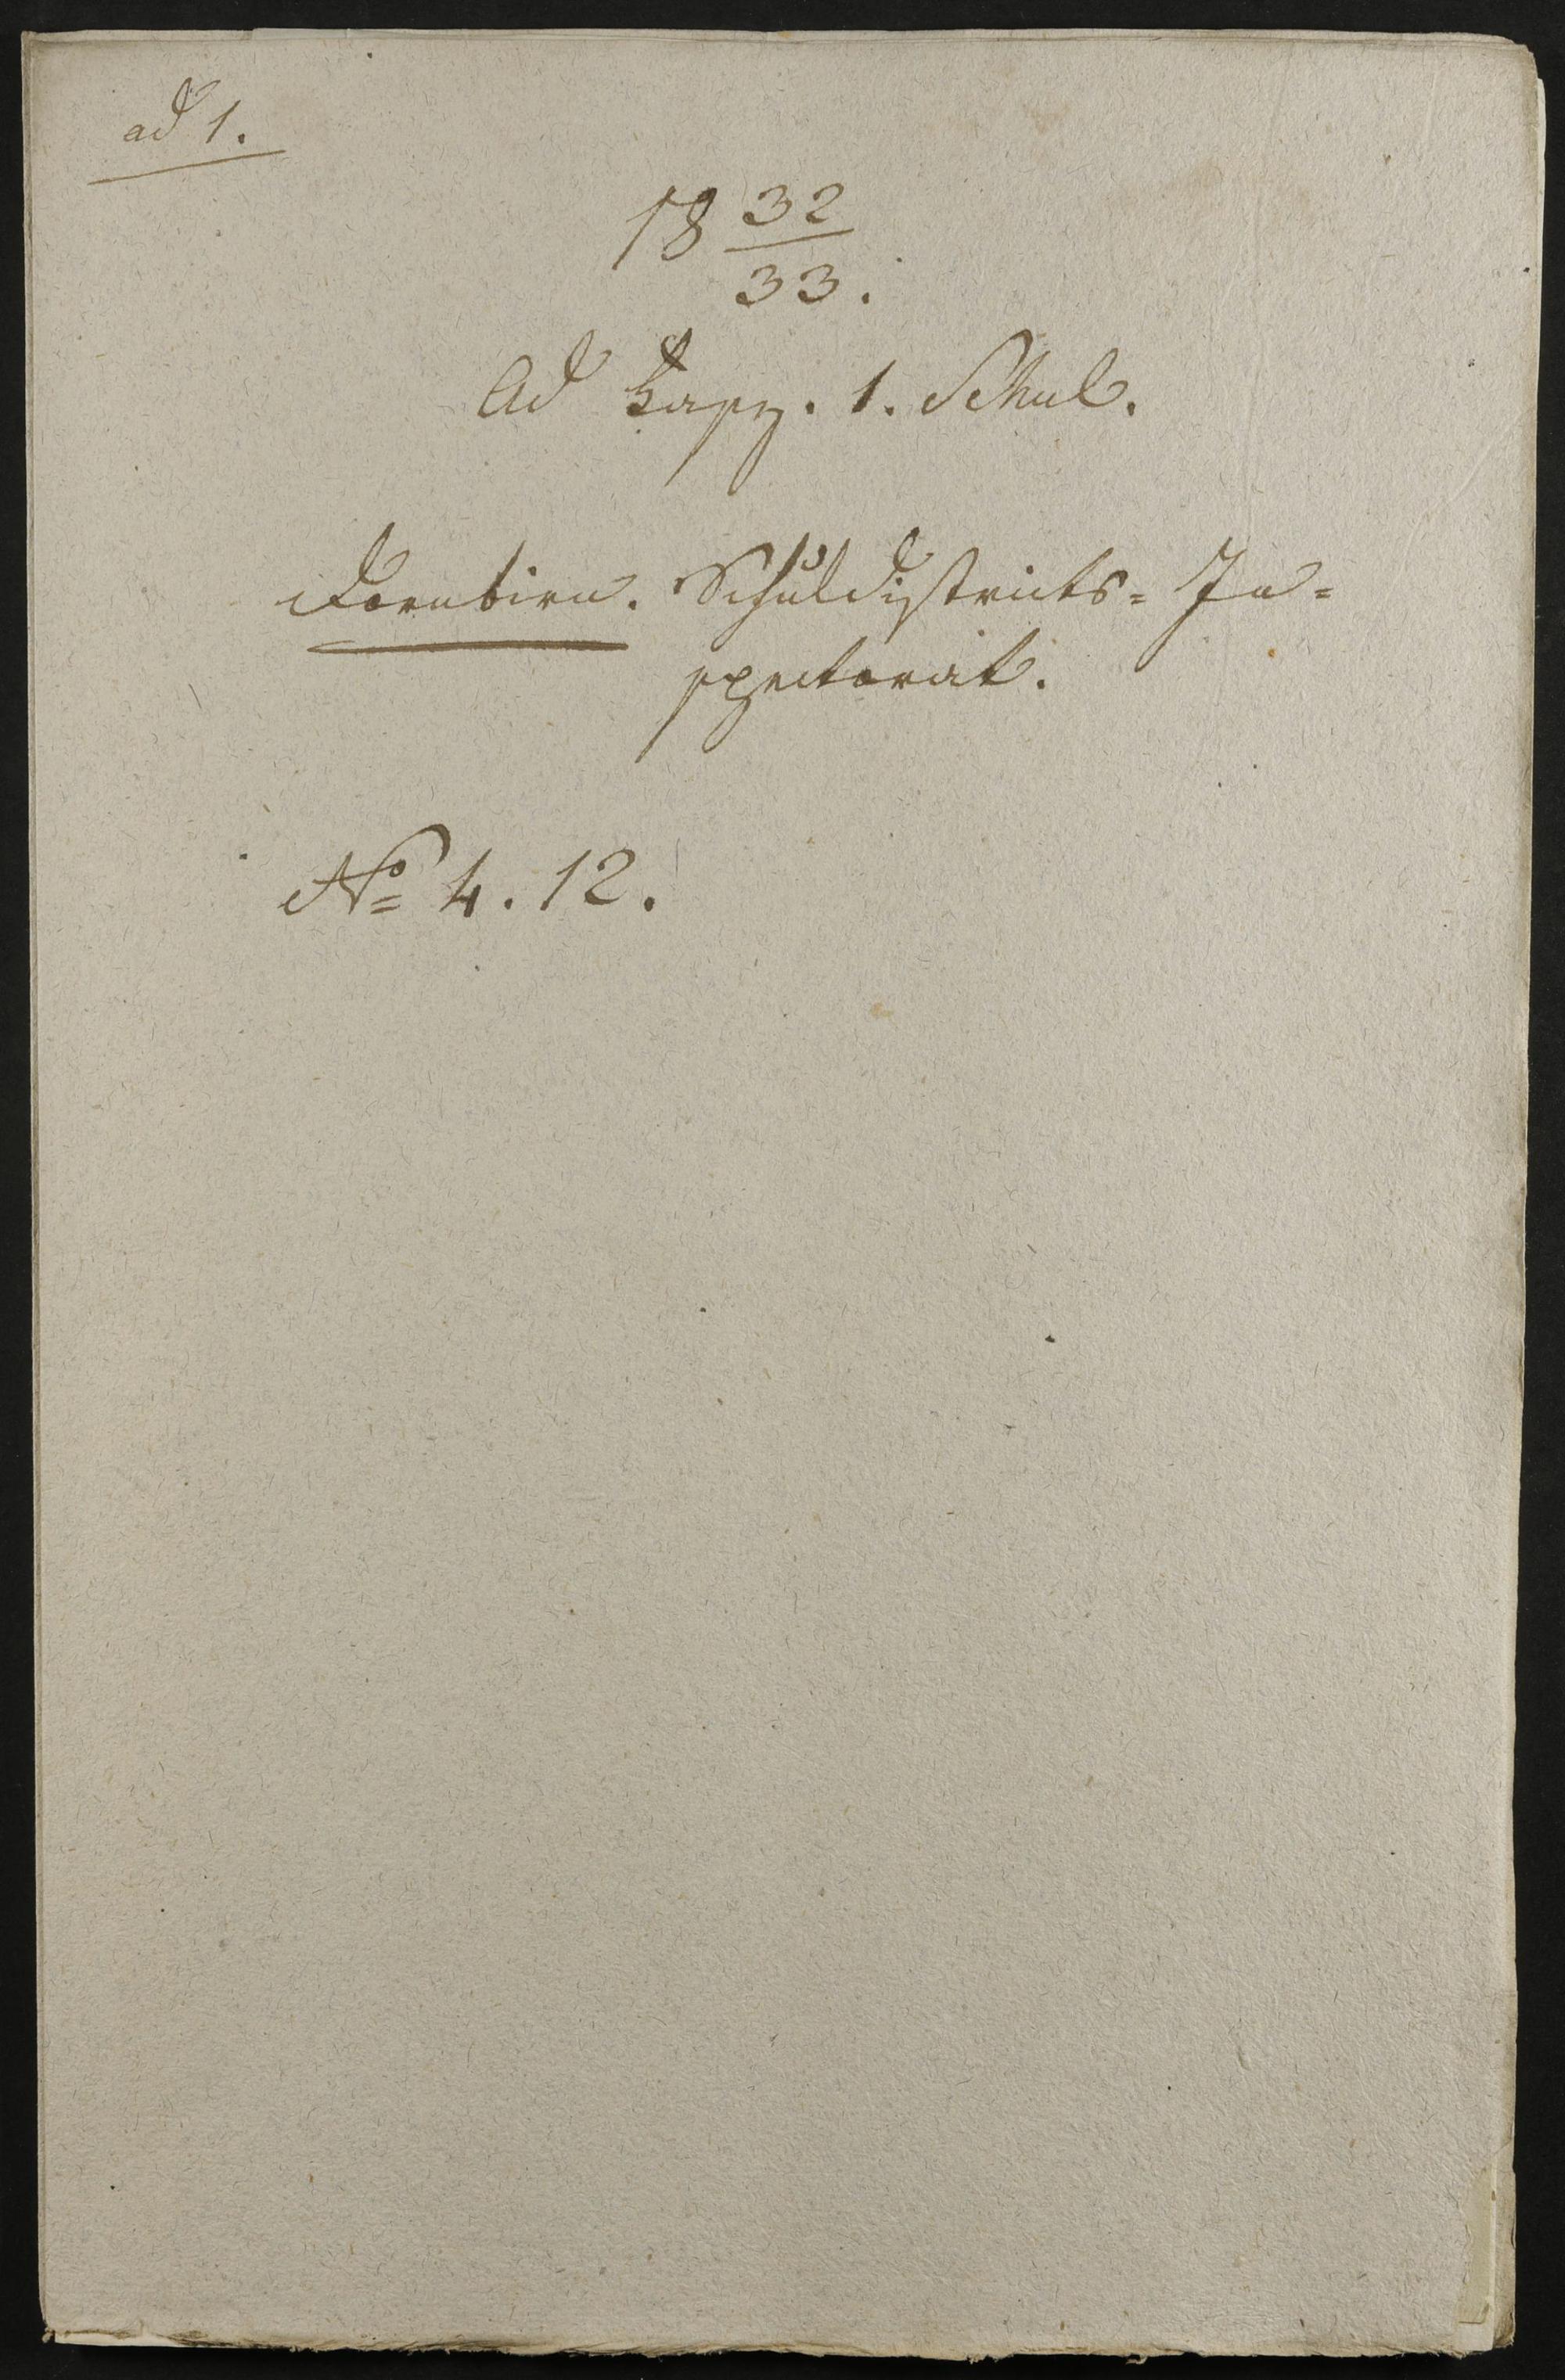 ad 1.
18 32/33.
Ad Fasz. 1. Schul.
Dornbirn. Schuldistricts= In=
spectorat.
No 4. 12.